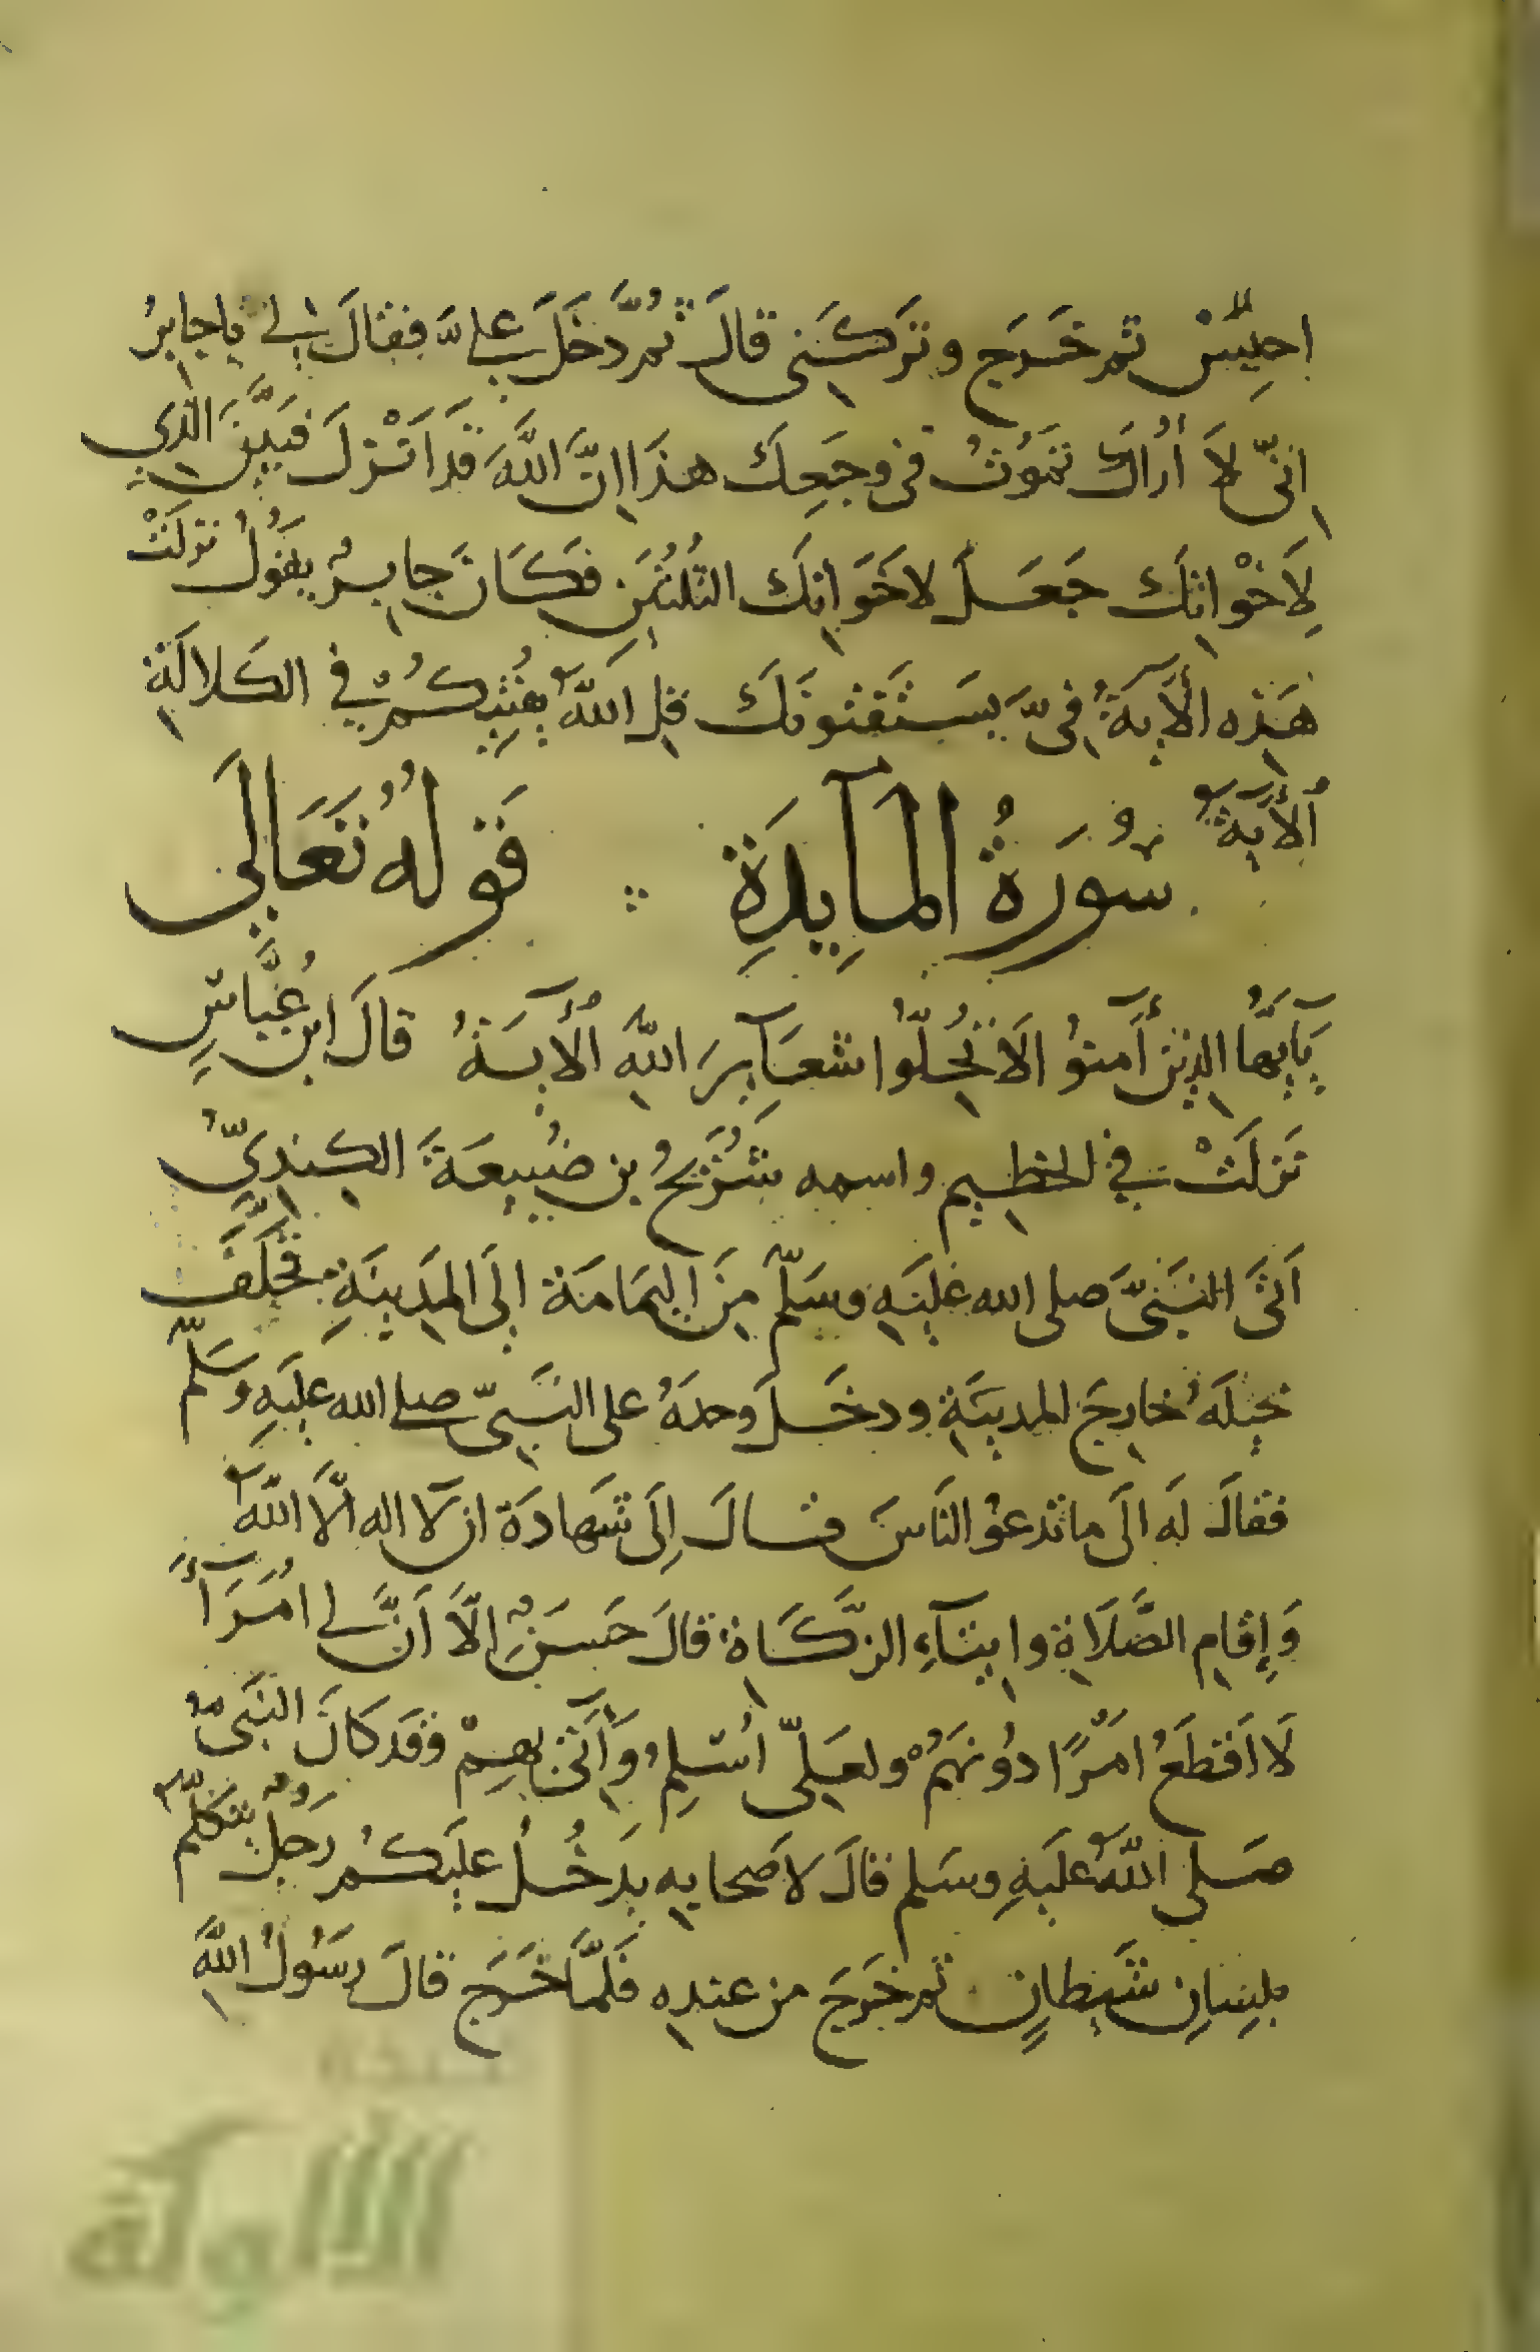 احبِسْ ثم خَرَج وتَرَكَنى قالَ ثُمَّ دَخَلَ علىَّ فقالَ لى يا جابرُ
إنىّ لاَ أراكَ تَموتُ فى وجَعِكَ هذَا إنَّ اللَّهَ قَد اَنْزلَ فَبَيَّنَ الَّذِى
لِاَخْوانِكَ جَعَلَ لاخَوانِكَ الثُّلُثَيْنِ فكَانَ جابِرٌ يقَوُلُ نزلَتْ
هَذِه الآيةُ فِىَّ يسَتَفتونَكَ قلِ اللَّهُ يفُتِيكُمْ في الكَلالَةِ
الآيَةُ سُورَةُ المَآيِدَةِ قَولهُ تَعَالَى
يَآيهَّا الذِينَ آمنوُا لاَ تُحِلّوُا شعَآيرَ اللَّهِ الآيةُ قالَ ابن عَبَّاسٍ
نَزلَتْ في الخطِيم واسمه شُرَيحُ بن ضُبيعَةَ الكِندِىُّ
اَتَى النَبىَّ صلى الله عَليَهِ وسَلّم مِنَ اليمَامَة إلَى المَدِينَةِ فخَلَّفَ
خيلَهُ خارِجَ المدينَةِ ودخَلَ وحدَهُ على النَبىّ صلى الله عليَهِ وسَلّم
فقالَ لَه الَى ما تدعوُ النَاسَ فقالَ إلَى شَهادَة ان لا اله الاَّ اللَّهُ
وَإقامِ الصَّلاَةِ وايتآءِ الزَّكَاة قالَ حَسَنٌ إلاَّ أنَّ لى امُرَآءً
لاَ اقطَعُ امَرًا دوُنهَمُ ولعَلِّى اُسْلِمُ وَآتى بِهِمْ وقَد كَانَ النَبىُّ
صَلى اللَّهُ عَليَهِ وسَلم قالَ لاصَحابِهِ يدَخُلُ عليَكُم رَجُلٌ يتَكَلّم
بلِسَانِ شَيطانٍ ثم خَرَجَ من عندِه فَلَمَّا خَرَج قالَ رسَوُلُ اللَّهِ
الألوكة